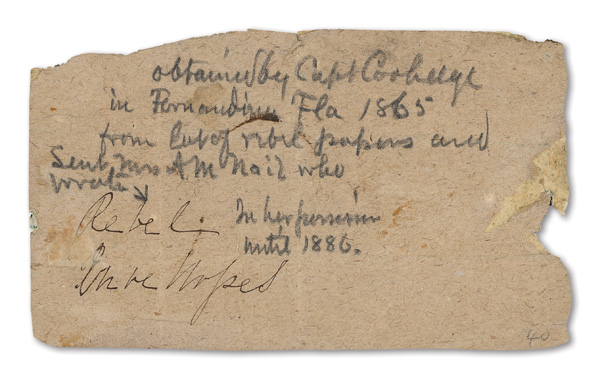 obtained by Capt Coolidge
in Fernandina Fla 1865
from lot of rebel papers and
Sent Mrs A M Nail who
wrote
Rebel. In her possession
until 1886.
Envelopes
40